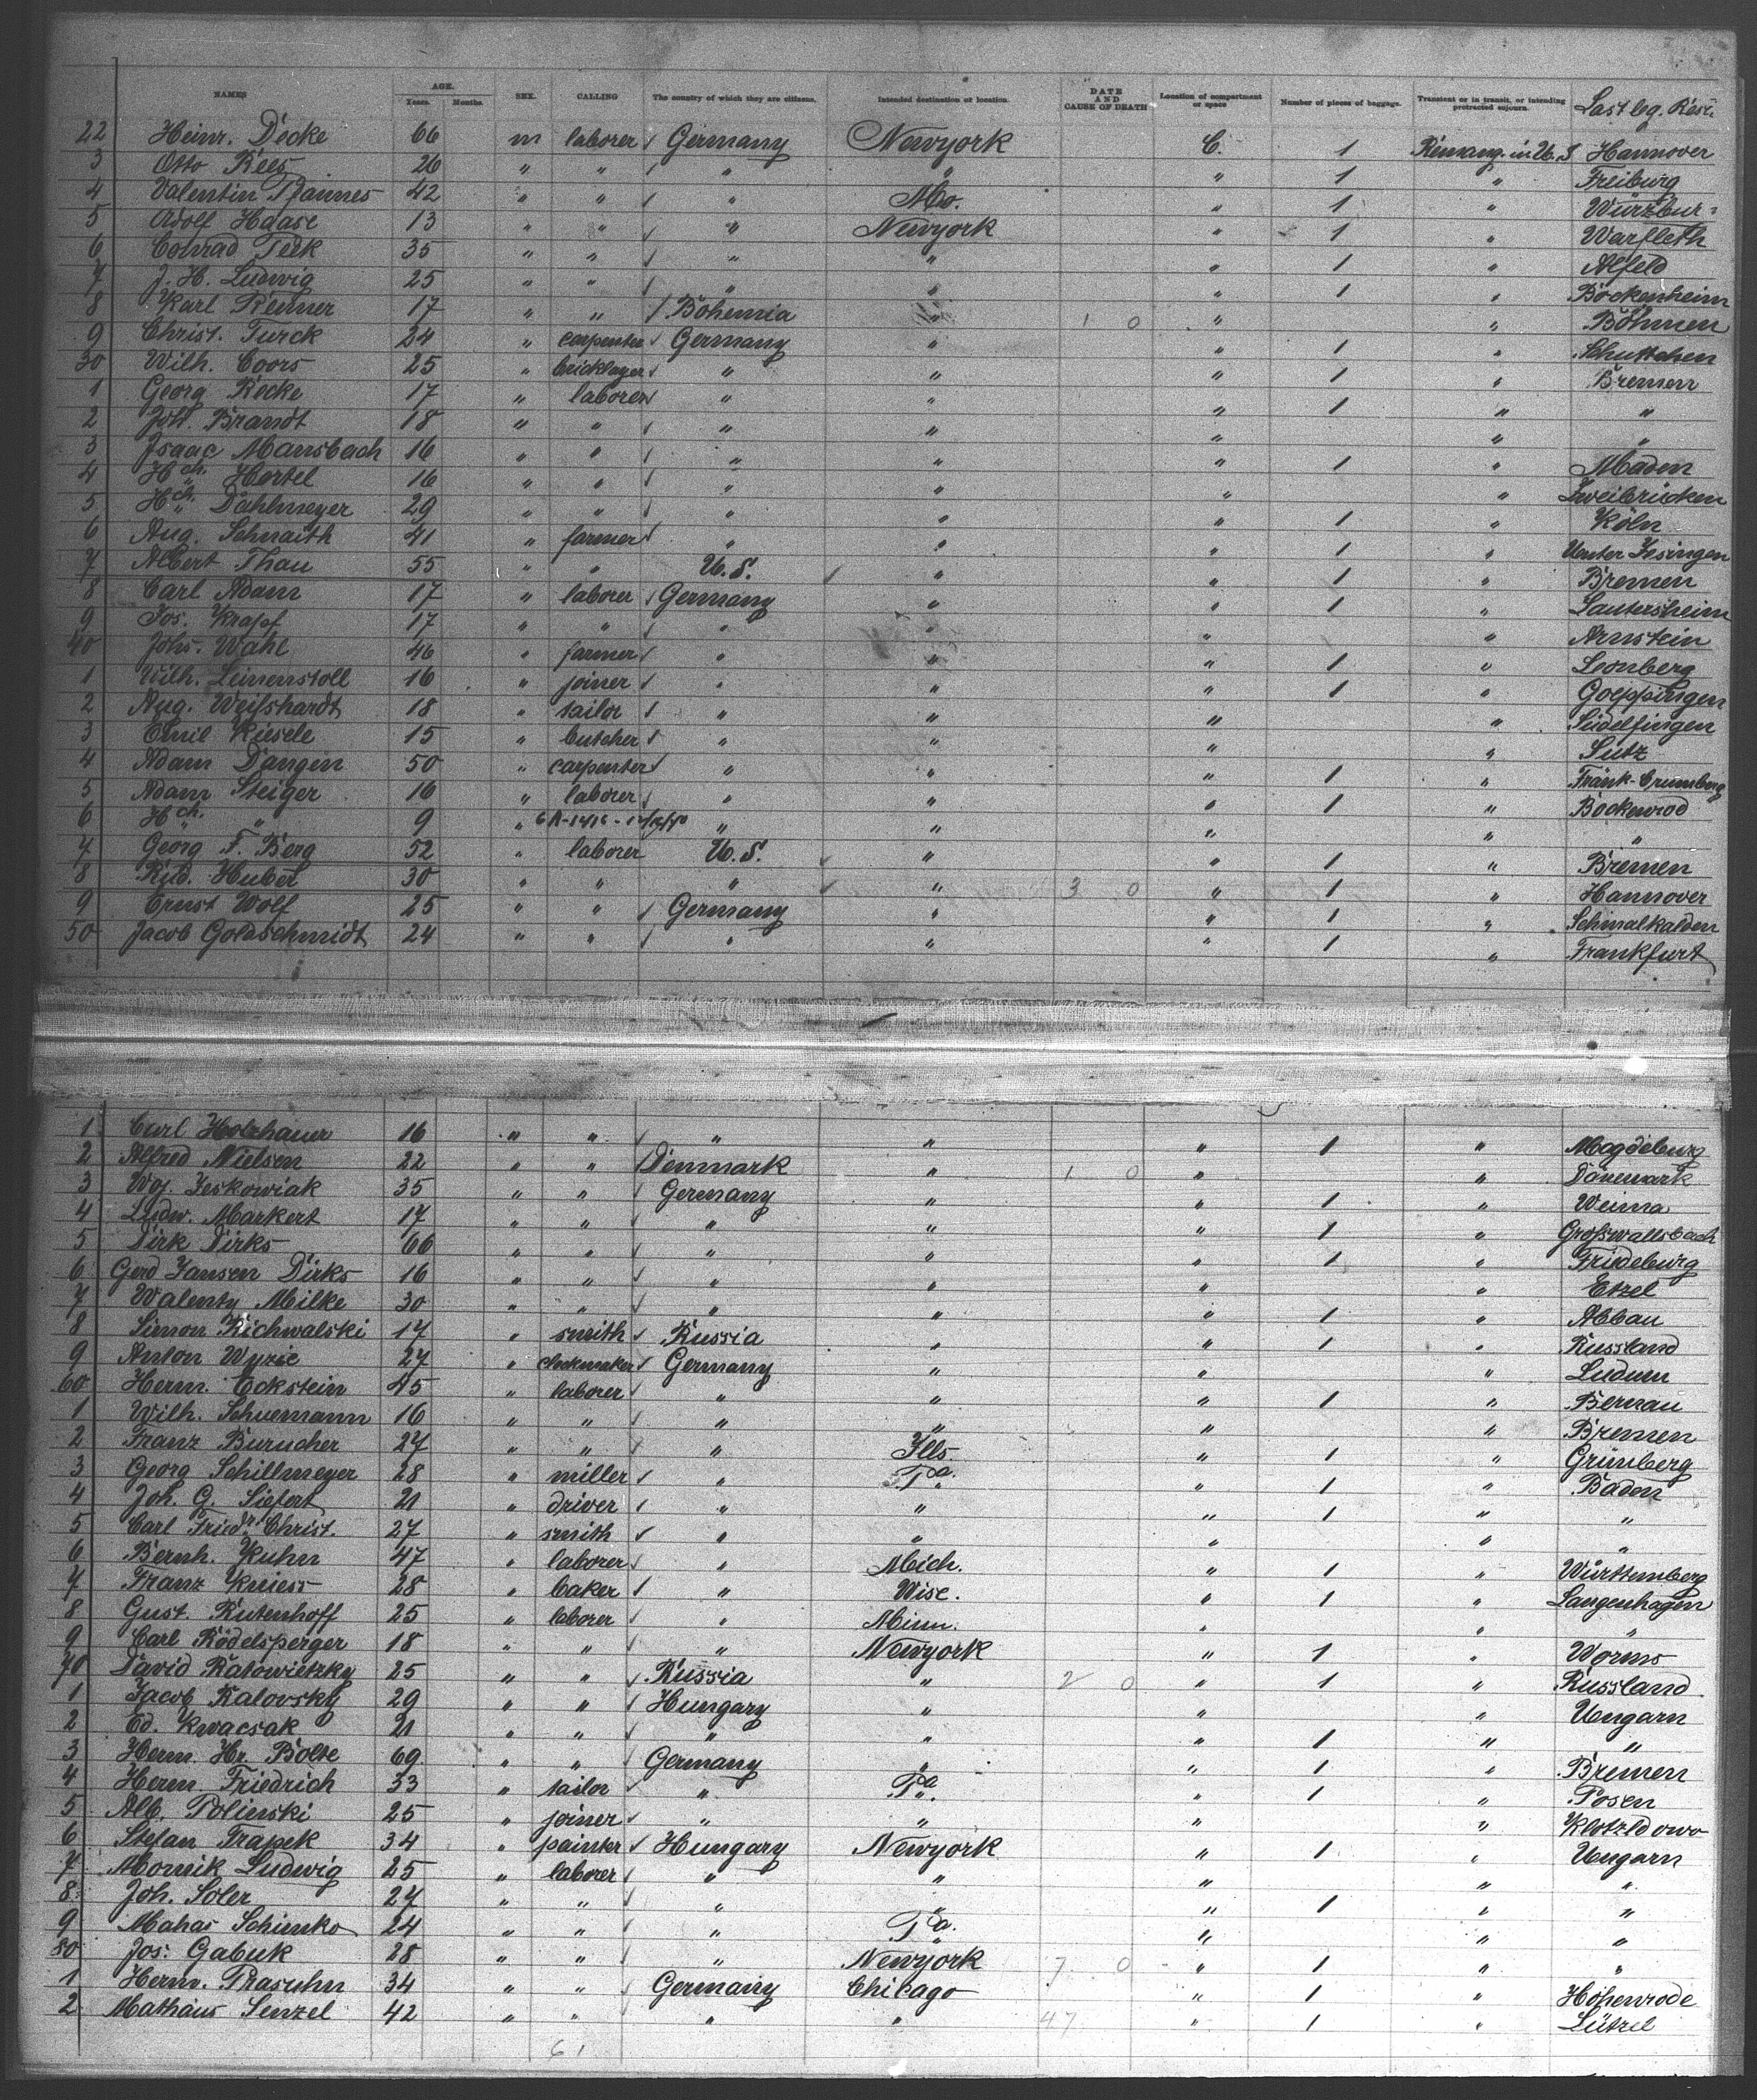 NAMES AGE. Years. Months. SEX. CALLING The country of which they are citizens. Intended destination or location. DATE AND CAUSE OF DEATH Location of compartment or space Number of pieces of baggage. Transient or in transit, or intending protracted sojourn. Last leg. Resi.
22 Heinr. Decke 66 m laborer Germany Newyork C. 1 Hannover
3 Otto Rees 26 " " " " " 1 " Freiburg
4 Valentin 42 " " " Mo. " 1 " Würzbur
5 Adolf Haase 13 " " " Newyork " 1 " Warfleth
6 Conrad Teek 35 " " " " " 1 " Alfeld
7 J. H. Ludwig 25 " " " " " 1 " Bockenheim
8 Karl Renner 17 " " Bohemia " 1 0 " " Böhmen
9 Christ. Turck 24 " carpenter Germany " " 1 "
30 Wilh. Coors 25 " bricklayer " " " 1 " Bremen
1 Georg Kocke 17 " laborer " " " 1 " "
2 Joh. Brandt 18 " " " " " " "
3 Isaac Mansbach 16 " " " " " 1 " Maden
4 Hch. Hertel 16 " " " " " " Zweibrücken
5 Hch. Dahlmeyer 29 " " " " " 1 " Köln
6 Aug. Schnaith 41 " farmer " " " 1 " Unter Jesingen
7 Albert Thau 55 " " U. S. " " 1 " Bremen
8 Carl Adam 17 " laborer Germany " " 1 " Lautersheim
9 Jos. Krapf 17 " " " " " " Arnstein
40 Johs. Wahl 46 " farmer " " " 1 " Leonberg
1 Wilh. Leinenstoll 16 " joiner " " " 1 " Goeppingen
2 Aug. Weifshardt 18 " tailor " " " " Sindelfingen
3 Emil Kiesele 15 " butcher " " " " Sulz
4 Adam Dangin 50 " carpenter " " " 1 "
5 Adam Steiger 16 " laborer " " " 1 " Bockenrod
6 Hch. " 9 " " " " " "
7 Georg F. Berg 52 " laborer U. S. " " 1 " Bremen
8 Rud. Huber 30 " " " " 3 0 " 1 " Hannover
9 Ernst Wolf 25 " " Germany " " 1 " Schmalkalden
50 Jacob Goldschmidt 24 " " " " " 1 " Frankfurt
1 Curl Holzhauer 16 " " " " " 1 " Magdeburg
2 Alfred Nielsen 22 " " Denmark " 1 0 " " Dänemark
3 Woj. Jeskowiak 35 " " Germany " " 1 " Weima
4 Ludw. Markert 17 " " " " " 1 " Grofswallsbach
5 Dirk Dirks 66 " " " " " 1 " Friedeburg
6 Gerd Jansen Dirks 16 " " " " " " Etzel
7 Walenty Milke 30 " " " " " 1 " Abbau
8 Simon Richwalski 17 " smith Russia " " 1 " Russland
9 Anton Wyzic 27 " clockmaker Germany " " " Ludum
60 Herm. Eckstein 45 " laborer " " " 1 " Bernau
1 Wilh. Schuemann 16 " " " " " " Bremen
2 Franz Burucher 27 " " " Ills. " 1 " Grünberg
3 Georg Schillmeyer 28 " miller " Pa. " 1 " Baden
4 Joh. G. Siefert 21 " driver " " " 1 " "
5 Carl Friedr. Christ. 27 " smith " " " " "
6 Bernh. Kuhn 47 " laborer " Mich. " 1 " Württemberg
7 Franz Kniess 28 " baker " Wisc. " 1 " Langenhagen
8 Gust. Rutenhoff 25 " laborer " Minn. " " "
9 Carl Rödelsperger 18 " " " Newyork " 1 " Worms
70 David Ratowietzky 25 " " Russia " 2 0 " 1 " Russland
1 Jacob Kalovsky 29 " " Hungary " " " Ungarn
2 Ed. Kwacsak 21 " " " " " 1 " "
3 Herm. Hr. Bolte 69 " " Germany " " 1 " Bremen
4 Herm. Friedrich 33 " tailor " Pa. " 1 " Posen
5 Alb. Polienski 25 " joiner " " " "
6 Stefan Trapek 34 " painter Hungary Newyork " 1 " Ungarn
7 Mornik Ludwig 25 " laborer " " " " "
8 Joh. Soler 27 " " " " " 1 " "
9 Mahas Schimko 24 " " " Pa. " " "
80 Jos. Gabuk 28 " " " Newyork 7 0 " 1 " "
1 Herm. Prasuhn 34 " " Germany Chicago " 1 " Hohenrode
2 Mathäus Senzel 42 " " " " 47 " 1 " Lützel
61